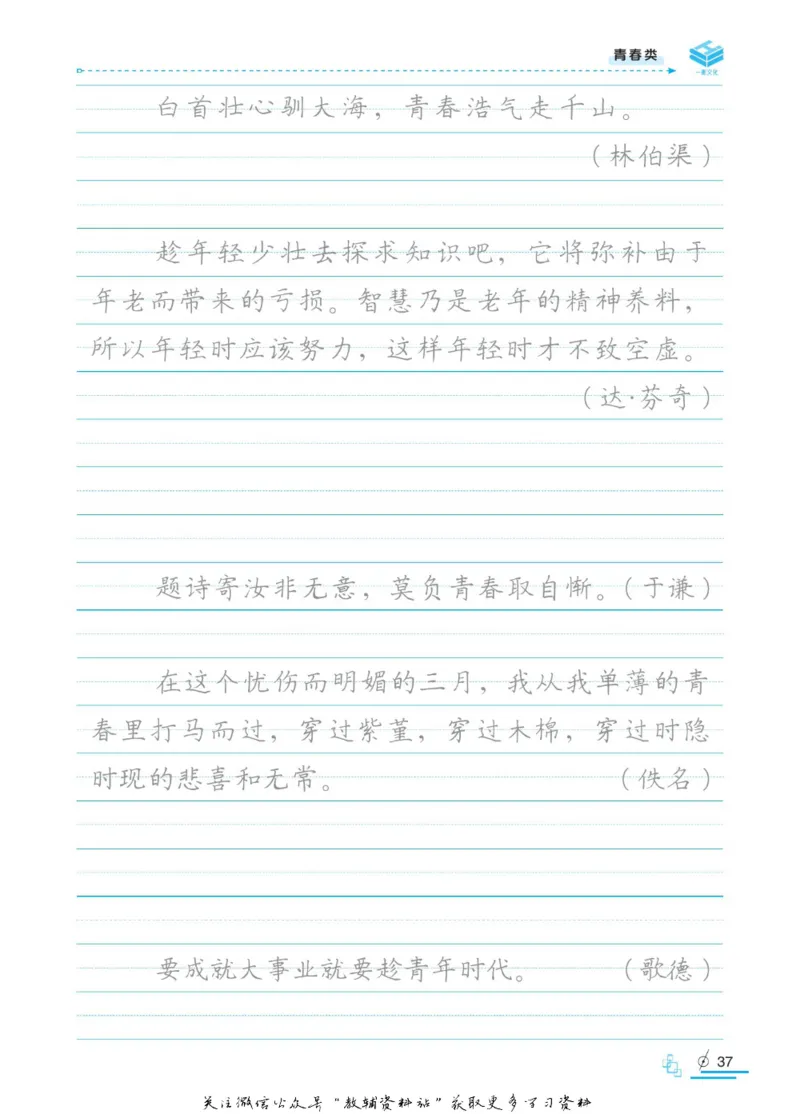 青春类
一墨文化
白首壮心驯大海，青春浩气走千山。
（林伯渠）
趁年轻少壮去探求知识吧，它将弥补由于
年老而带来的亏损。智慧乃是老年的精神养料，
所以年轻时应该努力，这样年轻时才不致空虚。
（达·芬奇）
题诗寄汝非无意，莫负青春取自惭。（于谦）
在这个忧伤而明媚的三月，我从我单薄的青
春里打马而过，穿过紫堇，穿过木棉，穿过时隐
时现的悲喜和无常。（佚名）
要成就大事业就要趁青年时代。（歌德）
37
关注微信公众号"教辅资料站"获取更多学习资料